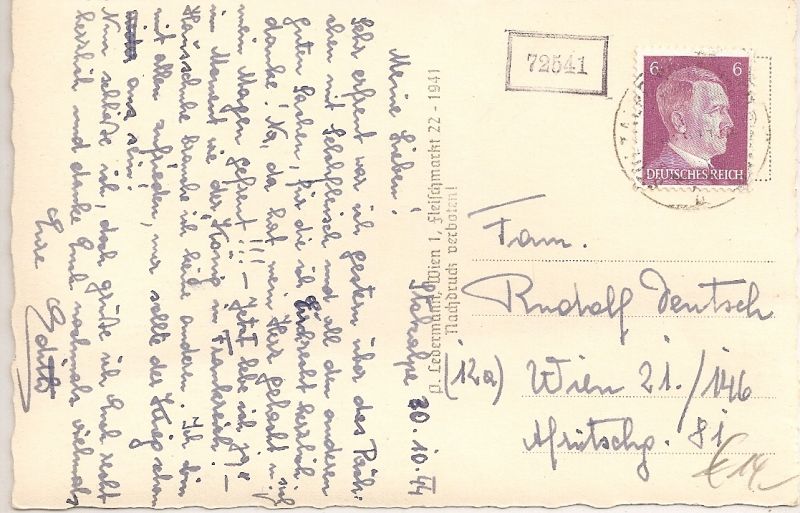 Stolzalpe 30.10.44
Meine Lieben!
Sehr erfreut war ich gestern über das Päck-
chen mit Selchfleisch und all den anderen
guten Sachen, für die ich Euch recht herzlich
danke! Na, da hat mein Herz gelacht u. sich
mein Magen gefreut!!! – Jetzt lebe ich ja
im Moment wie der König in Frankreich! –
Hausschuhe brauche ich keine anderen. Ich bin
mit allem zufrieden, nur sollte der Krieg schon
aus sein!
Nun schließe ich, dank grüße ich Euch recht
herzlich und danke Euch nochmals vielmals
Eure Edith
P. Ledermann, Wien 1, Fleischmarkt 22 - 1941
Nachdruck verboten!
72541
6 6
DEUTSCHES REICH
Fam.
Rudolf Deutsch
(12a) Wien 21./146
81
€ 14.-